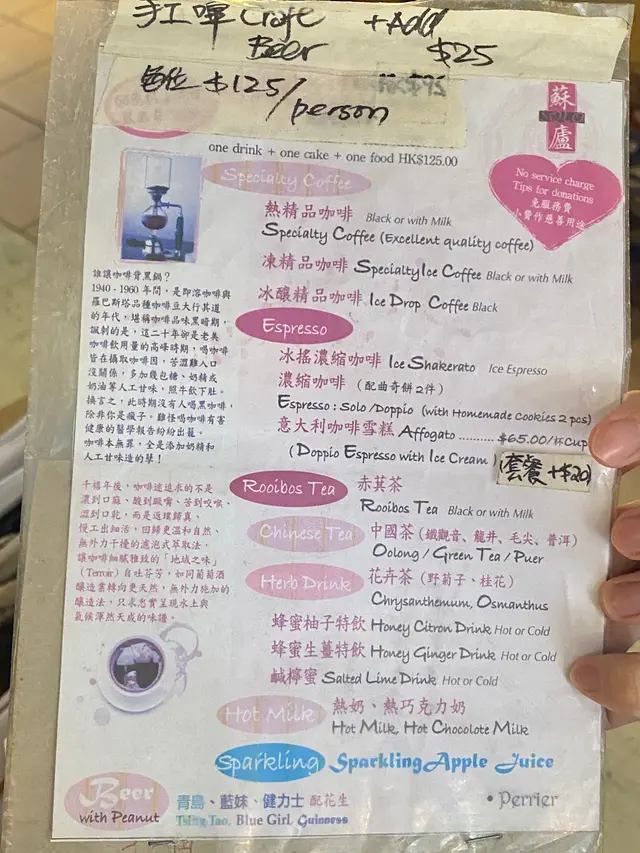 手工啤 Crafe +Add
Beer $25
每位 $125/person
蘇
SOLO
盧
one drink + one cake + one food HK$125.00
No service charge
Tips for donations
免服務費
小費作慈善用途
Specialty Coffee
熱精品咖啡 Black or with Milk
Specialty Coffee (Excellent quality coffee)
凍精品咖啡 Specialty Ice Coffee Black or with Milk
冰釀精品咖啡 Ice Drop Coffee Black
Espresso
冰搖濃縮咖啡 Ice Shakerato Ice Espresso
濃縮咖啡 (配曲奇餅2件)
Espresso : Solo/Doppio (with Homemade Cookies 2 pcs)
意大利咖啡雪糕 Affogato .......... $65.00/杯Cup
(Doppio Espresso with Ice Cream)
(套餐 +$20)
誰讓咖啡背黑鍋?
1940 - 1960 年間,是即溶咖啡與
羅巴斯塔品種咖啡豆大行其道
的年代,堪稱咖啡品味黑暗期,
諷刺的是,這二十年卻是老美
咖啡飲用量的高峰時期,喝咖啡
皆在攝取咖啡因,苦澀難入口
沒關係,多加幾包糖、奶精或
奶油等人工甘味,照牛飲下肚。
換言之,此時期沒有人喝黑咖啡,
除非你是瘋子。難怪喝咖啡有害
健康的醫學報告紛紛出籠。
咖啡本無罪,全是添加奶精和
人工甘味造的孽!
Rooibos Tea 赤萁茶
Rooibos Tea Black or with Milk
Chinese Tea 中國茶 (鐵觀音、龍井、毛尖、普洱)
Oolong / Green Tea / Puer
Herb Drink 花卉茶 (野菊子、桂花)
Chrysanthemum, Osmanthus
蜂蜜柚子特飲 Honey Citron Drink Hot or Cold
蜂蜜生薑特飲 Honey Ginger Drink Hot or Cold
鹹檸蜜 Salted Lime Drink Hot or Cold
千禧年後,咖啡迷追求的不是
濃到口麻、酸到嘔嘴、苦到咬喉、
澀到口乾,而是返璞歸真,
慢工出細活,回歸更溫和自然、
無外力干擾的濾泡式萃取法,
讓咖啡細膩雅致的「地域之味」
(Terroir) 自吐芬芳,如同葡萄酒
釀造業轉向更天然,無外力施加的
釀造法,只求忠實呈現水土與
氣候渾然天成的味譜。
Hot Milk 熱奶、熱巧克力奶
Hot Milk, Hot Chocolate Milk
Sparkling Sparkling Apple Juice
• Perrier
Beer
with Peanut
青島、藍妹、健力士 配花生
Tsing Tao, Blue Girl, Guinness